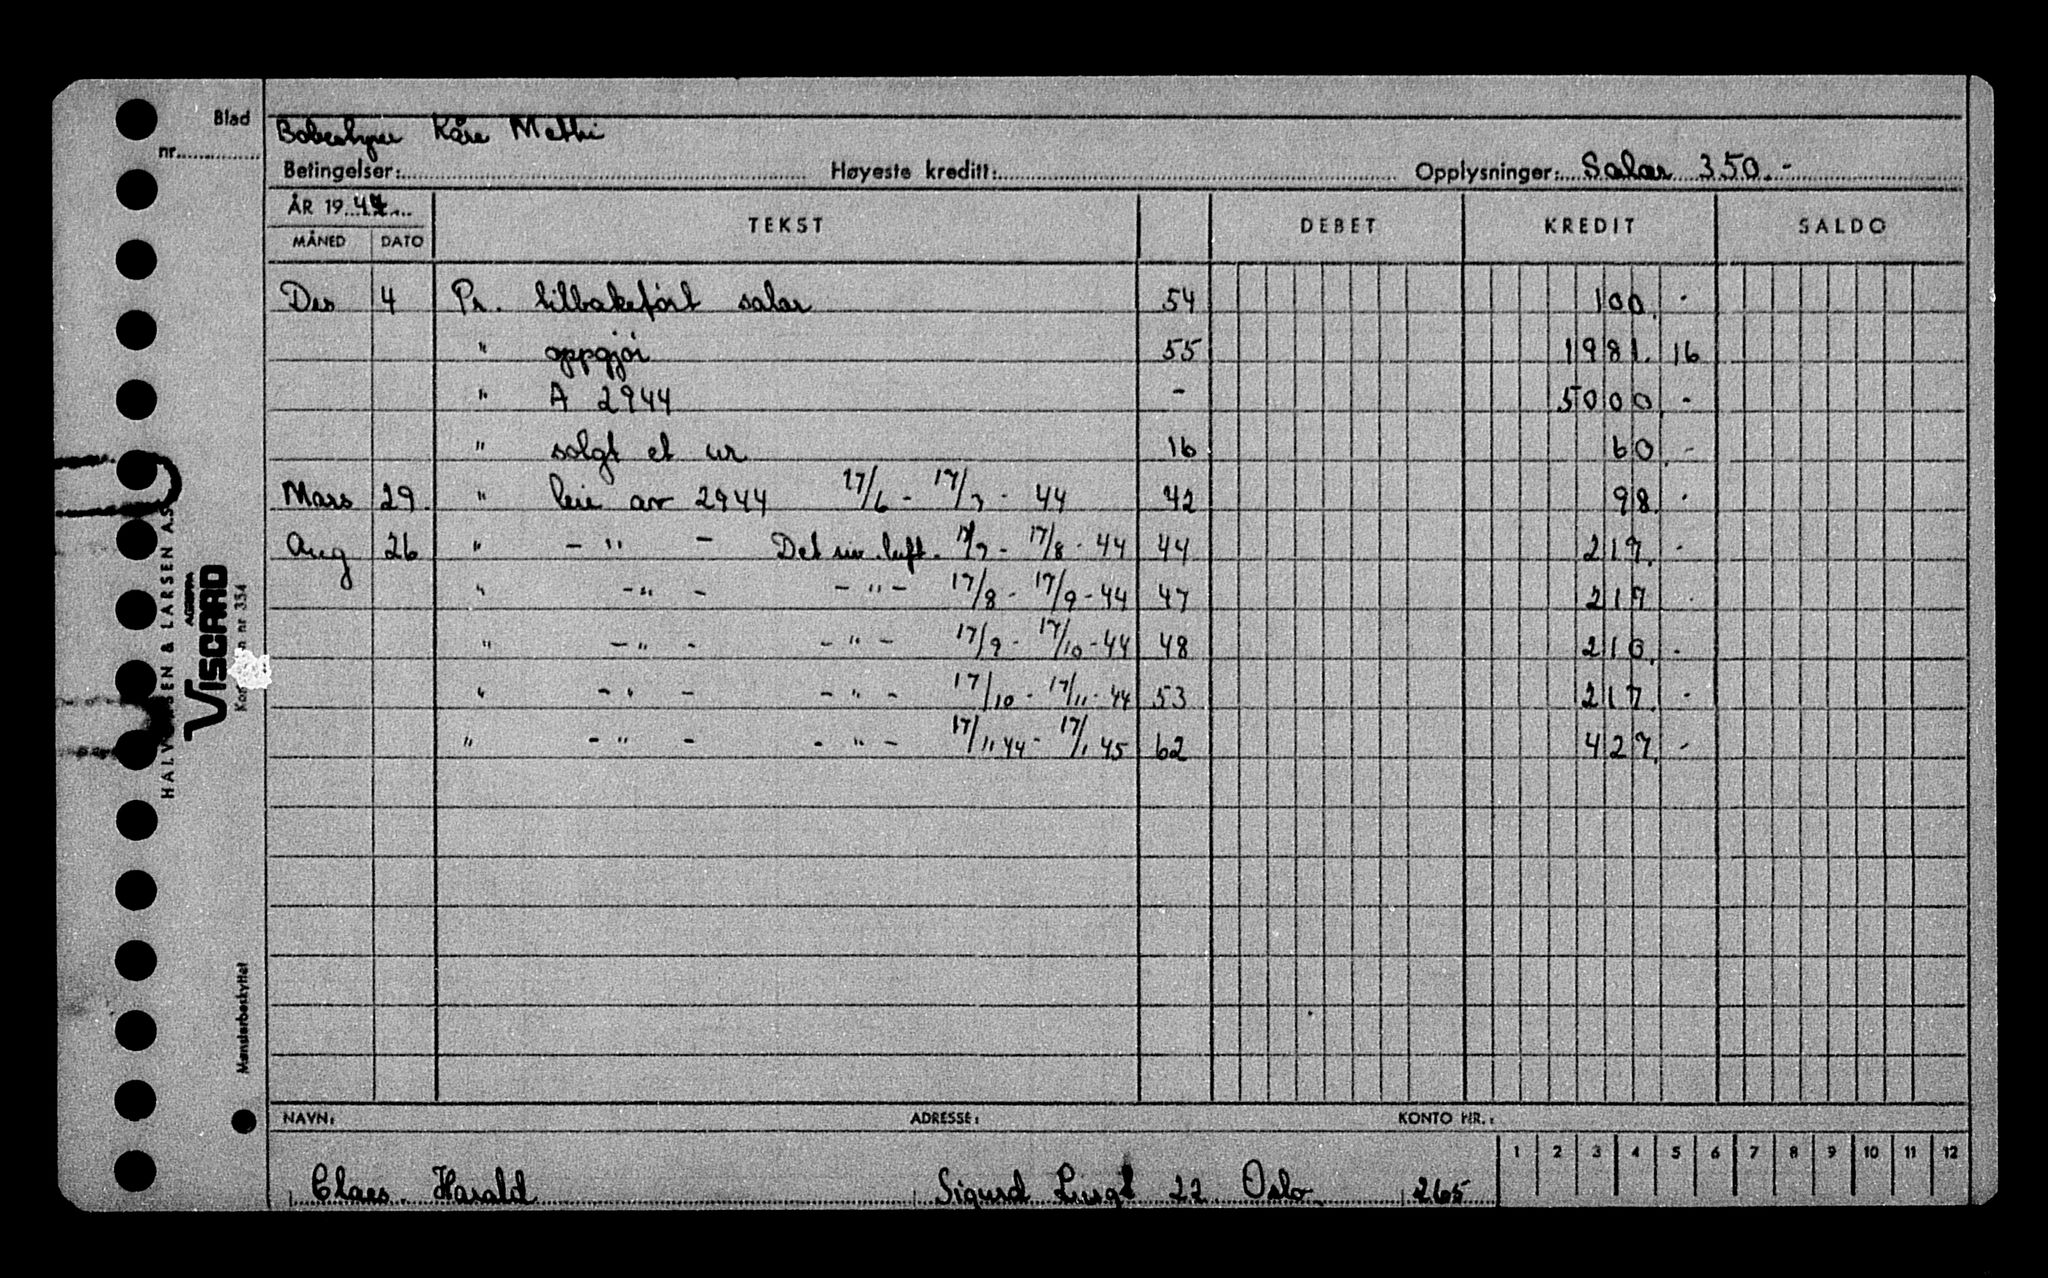 Blad
nr.
Bobestyrer Kåre Methi
Betingelser: Høyeste kreditt: Opplysninger: Salær 350.-
ÅR 1944
MÅNED DATO TEKST DEBET KREDIT SALDO
Des 4 Pr. tilbakeført salær 54 100.-
" oppgjør 55 1981.16
" A 2944 - 5000.-
" solgt et ur 16 60.-
Mars 29. " leie av 2944 17/6 - 17/7 - 44 42 98.-
Aug 26 " - " - Det siv. luft. 17/7 - 17/8 - 44 44 217.-
" - " - - " - 17/8 - 17/9 - 44 47 217 -
" - " - - " - 17/9 - 17/10 - 44 48 210.-
" - " - - " - 17/10 - 17/11 - 44 53 217.-
" - " - - " - 17/11 44 - 17/1 45 62 427.-
NAVN: ADRESSE: KONTO NR.:
1 2 3 4 5 6 7 8 9 10 11 12
Claes. Harald Sigurd 22 Oslo 265
HALVORSEN & LARSEN A.S
VISCARD
nr 354
Mønsterbeskyttet